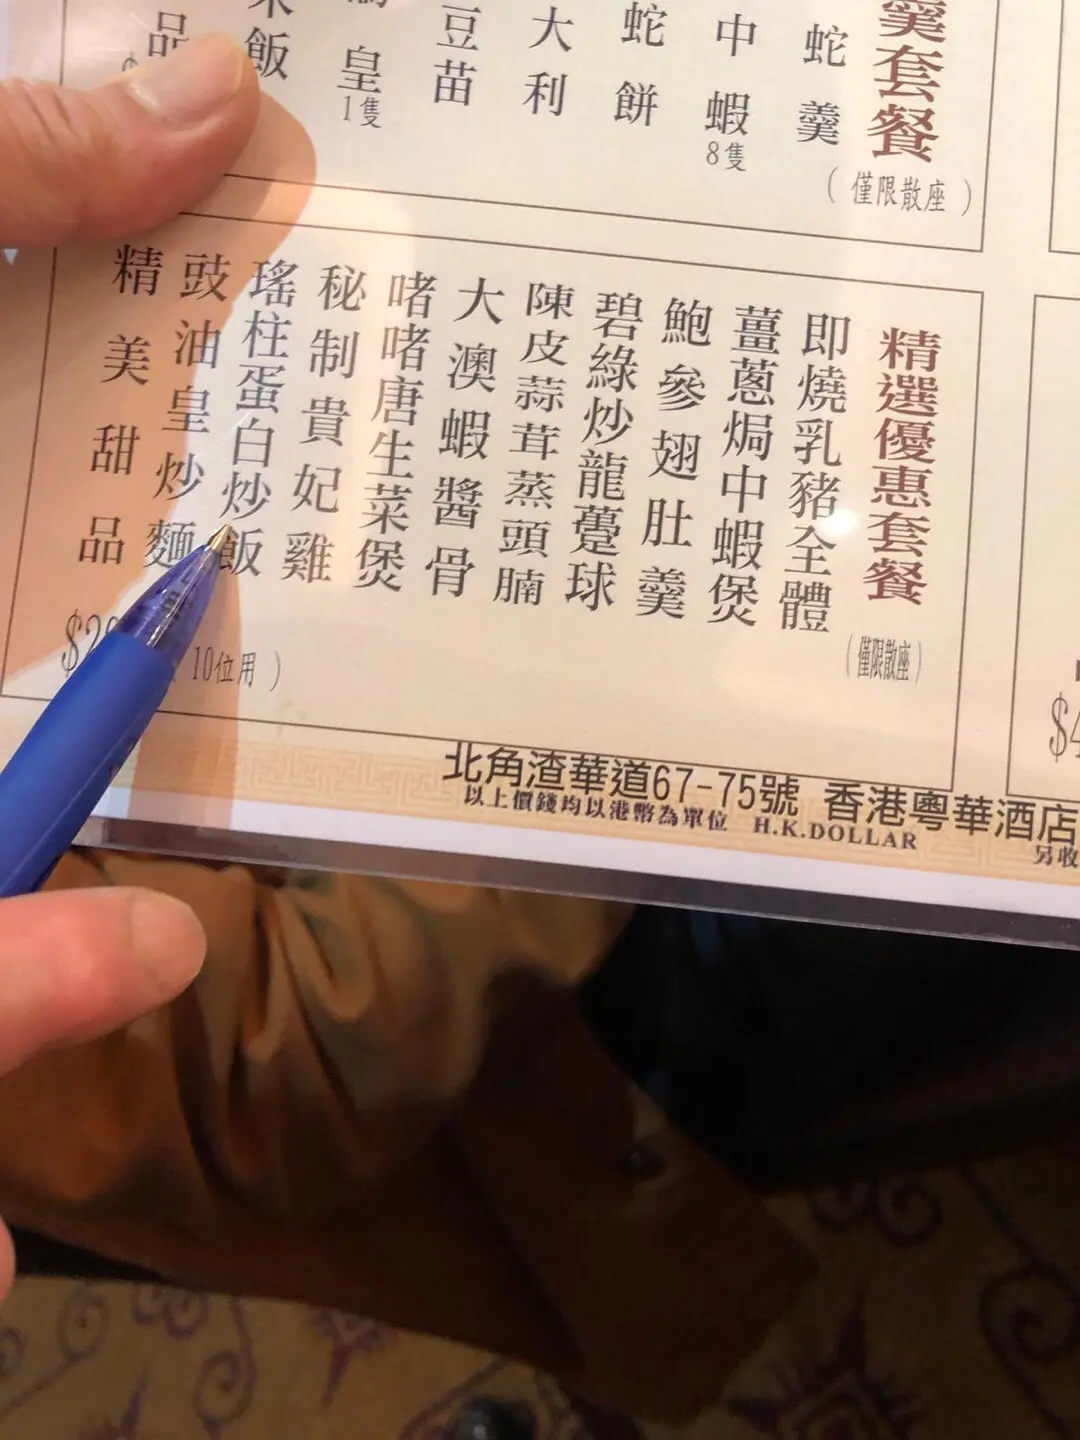 羹套餐
（僅限散座）
蛇羹
中蝦
8隻
蛇餅
大利
豆苗
皇
1隻
飯
品
精選優惠套餐
（僅限散座）
即燒乳豬全體
薑蔥焗中蝦煲
鮑參翅肚羹
碧綠炒龍躉球
陳皮蒜茸蒸頭腩
大澳蝦醬骨
啫啫唐生菜煲
秘制貴妃雞
瑤柱蛋白炒飯
豉油皇炒麵
精美甜品
10位用）
北角渣華道67-75號 香港粵華酒店
以上價錢均以港幣為單位 H.K.DOLLAR
另收